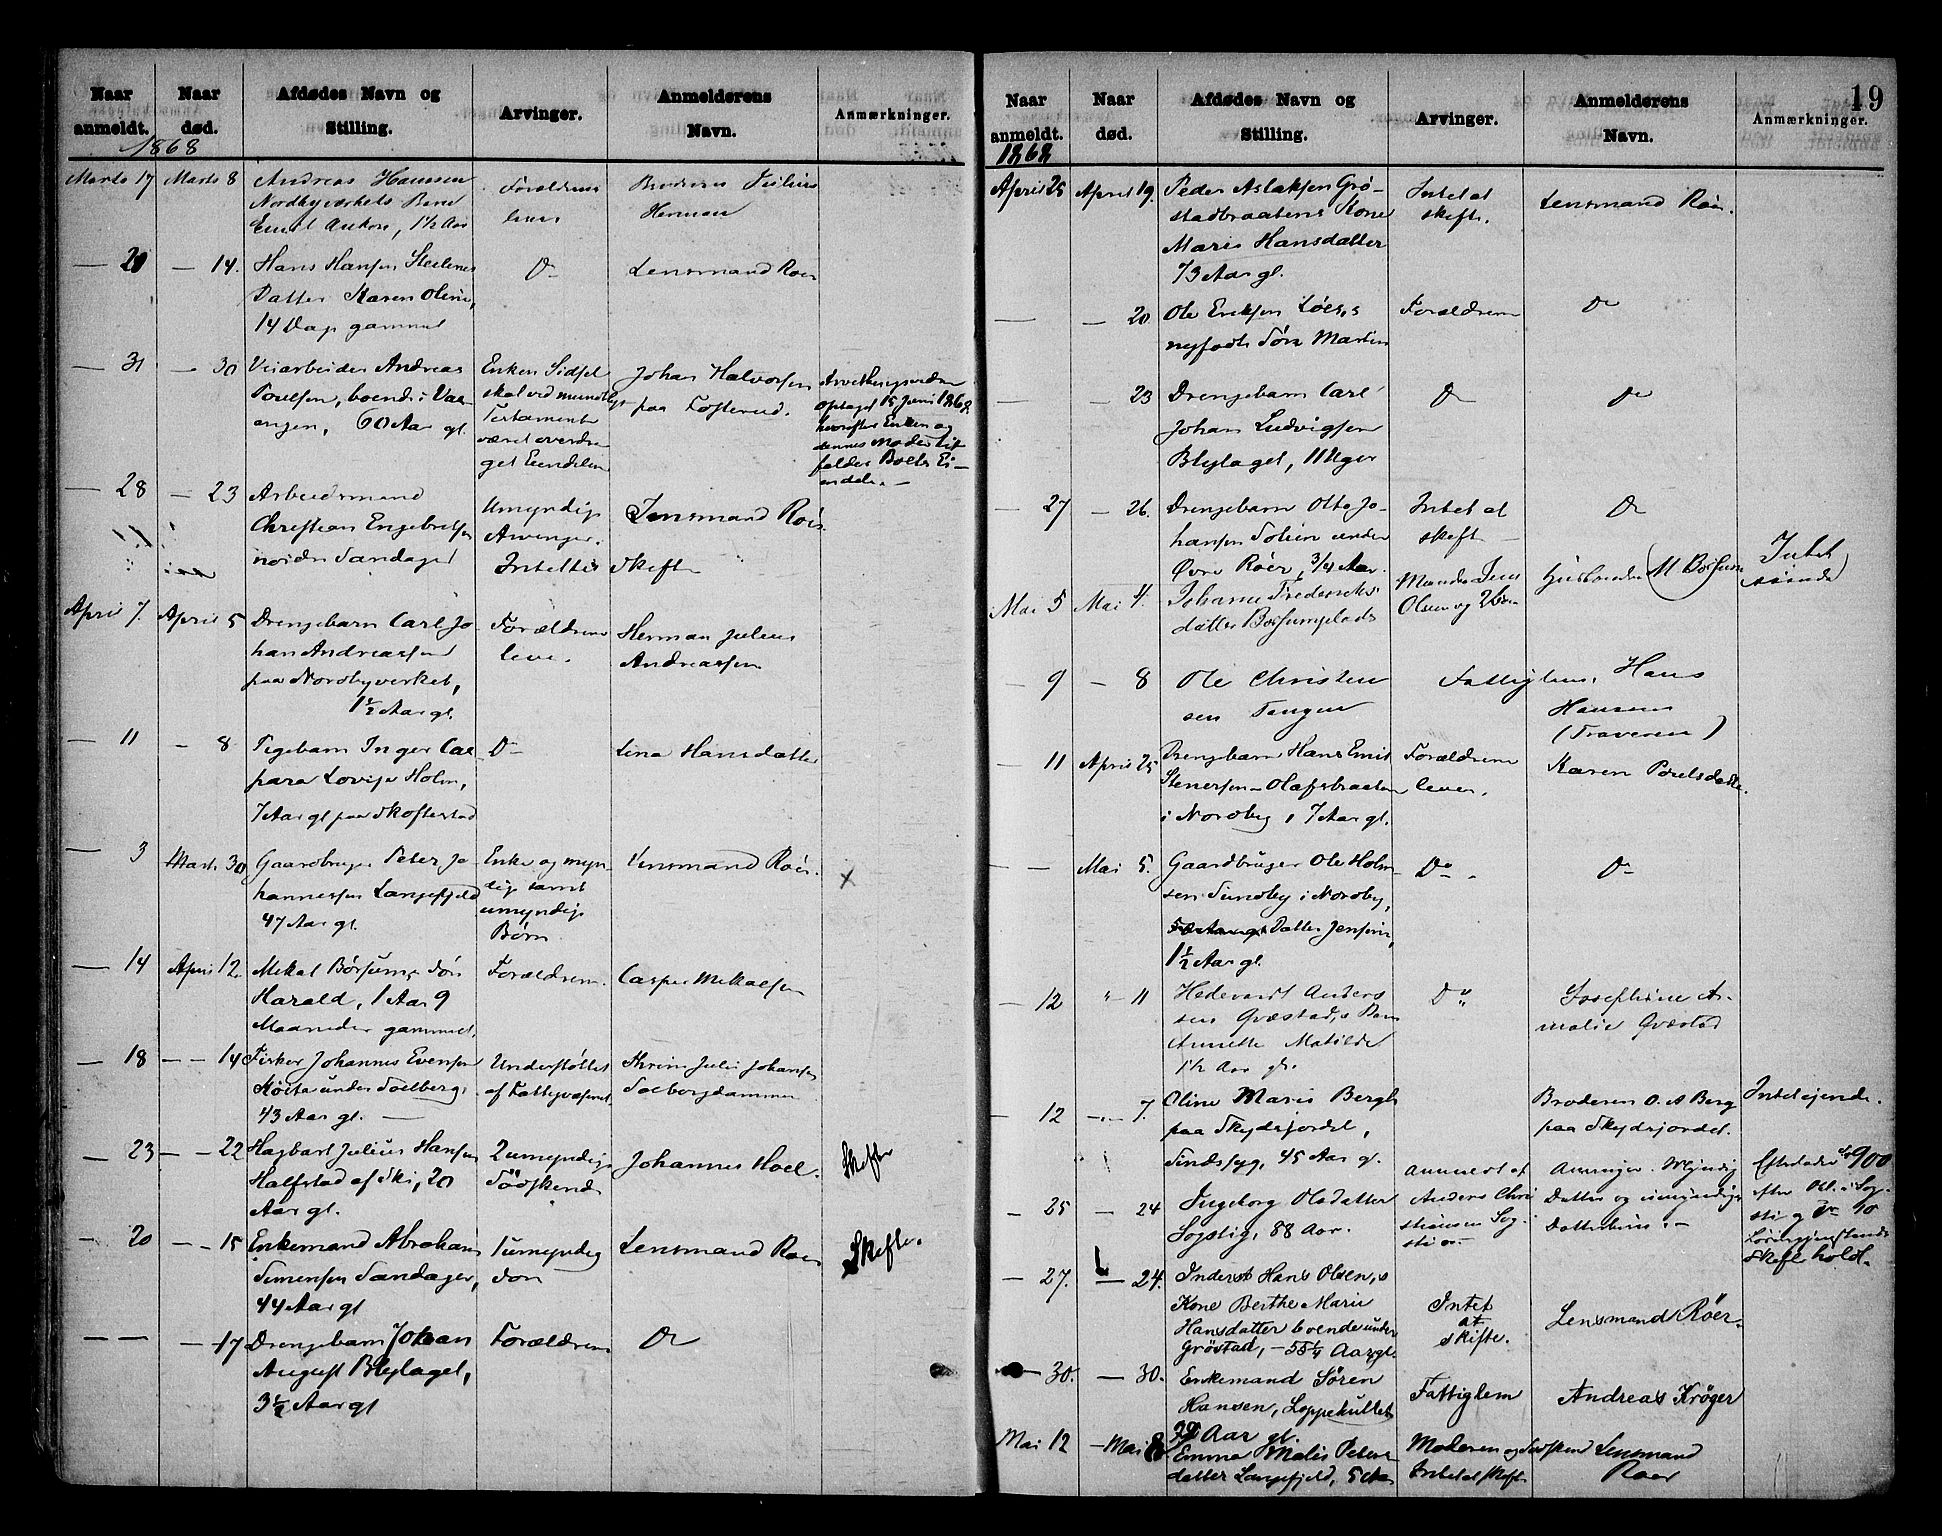 Naar anmeldt. Naar død. Afdødes Navn og Stilling. Arvinger. Anmelderens Navn. Anmærkninger.
1868
Marts 17 Marts 8 Andreas Hansen Forældrene Broderen Julius
Nordbyværkets Barn lever Herman
Emil Anton, 1½ Aar
— 20 — 14. Hans Hansen D° Lensmand Roer
Datter Karen Oline,
14 Dage gammel
— 31 — 30 Veiarbeider Andreas Enken Sidsel Johan Halvorsen
Poulsen, boende i Vaa- skal ved mundtligt paa Fosterud. optaget 15 Juni 1868,
angen, 60 Aar gl. Testamente hvorefter Enken og
været overdra- dennes Moder til-
get Eiendelen falder Boets Ei-
endele. —
— 28 — 23 Arbeidsmand Umyndige Lensmand Roer.
Christian Engebretsen Arvinger.
nordre Sandager Intet til Skifte
April 7. April 5 Drengebarn Carl Jo- Forældrene Herman Julius
han Andreassen leve. Andreassen
paa Nordbyverket,
1½ Aar gl.
— 11 — 8 Pigebarn Inger Cas- D° Lina Hansdatter
para Lovise Holm,
7 Aar gl paa Skoftestad
— 3 Marts 30 Gaardbruger Peter Jo- Enke og myn- Lensmand Roer. x
hannessen Langefjeld dige samt
47 Aar gl. umyndige
Børn.
— 14 April 12. Mikal Børsums Søn Forældrene. Casper Mikalsen
Harald, 1 Aar 9
Maaneder gammel.
— 18 — 14 Fisker Johannes Evensen Understøttet Thrine Julie Johansen
under Solberg, af Fattigvæsenet. Solbergdammen
43 Aar gl. —
— 23 — 22 Hagbart Julius Hansen 2 umyndige Johannes Hoel. Skifte
Halfstad af Ski, 20 Södskende
Aar gl.
— 20 — 15 Enkemand Abraham 1 umyndig Lensmand Roer Skifte.
Simensen Sandager, Søn
44 Aar gl
— — 17 Drengebarn Johan Forældrene D°
August Blylaget,
3½ Aar gl
19
Naar anmeldt. Naar død. Afdødes Navn og Stilling. Arvinger. Anmelderens Navn. Anmærkninger.
1868
April 25 April 19. Peder Aslaksen Grø- Intet at Lensmand Roer.
stadbraatens Kone skifte.
Marie Hansdatter
73 Aar gl.
— — 20 Ole Eriksen Forældrene D°
nyfødte Søn Martin
— 23 Drengebarn Carl D° D°
Johan Ludvigsen
Blylaget, 11 Uger
— 27 — 26. Drengebarn Otto Jo- Intet at D°
hansen Solien under skifte —
Øvre Roer, ¾ Aar.
Mai 5 Mai 4. Johanne Frederiks- Manden Jens Husbonden (M Børsum) Intet
datter Børsumplads Olsen og 2 Børn eiende
— 9 — 8 Ole Christen- Fattiglem. Hans
sen Tangen Hansen
(Traveren)
— 11 April 25 Drengebarn Hans Emil Forældrene Karen Poulsdatter.
Stenersen Olafsbraaten lever.
i Nordby, 7 Aar gl.
— Mai 5. Gaardbruger Ole Holm- D° D°
sen Sundby i Nordby,
Datter Jensine,
1½ Aar gl.
— 12 " 11 Hedevardt Anders- D° Josephine A-
sen Qvæstad,s Barn malie Qvæstad
Annette Matilde
1½ Aar gl.
— 12 — 7. Oline Marie Bergh Broderen O. A Berg Intet eiende.
paa Skydsjordet, paa Skydsjordet.
Sindssyg, 45 Aar gl.
— 25 — 24 Ingeborg Olsdatter anmeldt af Arvinger. Myndig Efterlader 900
Sogstig, 88 Aar. Anders Chri- Datter og umyndige
stiansen Sog- Datterbørn. —
sti — Skifte holdt.
— 27. — 24. Inderst Hans Olsen,s
Kone Berthe Marie Intet Lensmand Röer.
Hansdatter boende under at
Grøstad, — 55¼ Aar gl. skifte.
— 30. — 30. Enkemand Sören Fattiglem Andreas Kröger
Hansen, Loppekullet
Aar gl.
Mai 12 — Mai 8 Emma Malie Peters- Moderen og Sødskend Lensmand
datter Langefjeld, 5 Aar Intet at skifte Roer